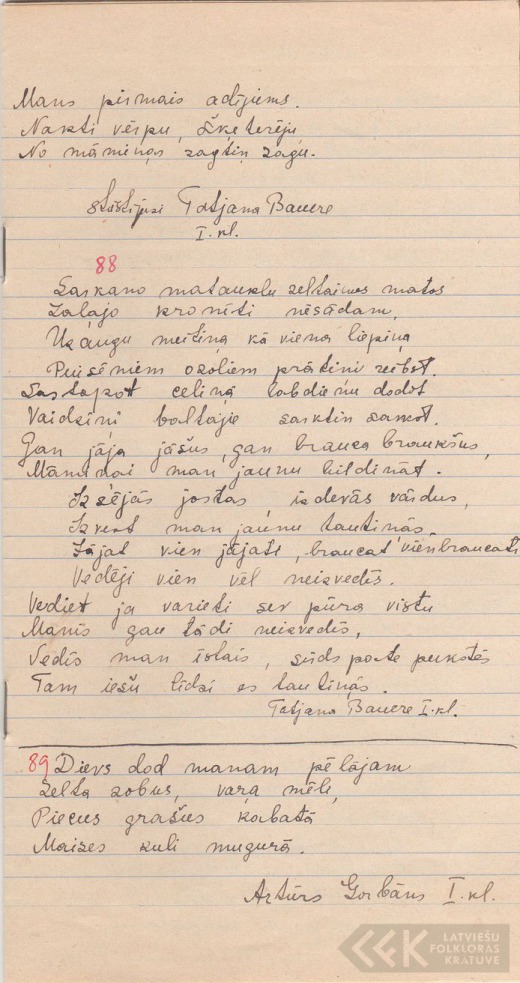 Mans pirmais adījiems.
Nakti vērpu, šķeterēju,
No māmiņas zagtin zagu.
stāstījusi Tatjana Bauere
I. kl.
88
Saskano matauklu zeltainos matos
Zaļajo kronīti nēsādam,
Uzaugu meitiņa kā viena liepiņa
Puisēniem ozoliem prātini reibst.
Sastopot celiņā labdienu dodot
Vaidziņi baltajie sarktin sarkst.
Gan jāja jāšus, gan brauca braukšus,
Māmiņai man jaunu bildināt.
Izsējās jostas, izdevās vārdus,
Izvest man jaunu tautiņās,
Jājat vien jājati, braucat vien braucati
Vedēji vien vēl neizvedīs.
Vediet ja varieti sev pūra vistu
Manis gan tādi neizvedīs,
Vedīs man īstais, sirds pate pukstēs
Tam iešu līdzi es tautiņās.
Tatjana Bauere I. kl.
89 Dievs dod manam pēlājam
Zelta zobus, vaŗa mēli,
Piecus grašus kabatā
Maizes kuli mugurā.
Artūrs Gorbāns I. kl.
LATVIEŠU
FOLKLORAS
KRĀTUVE